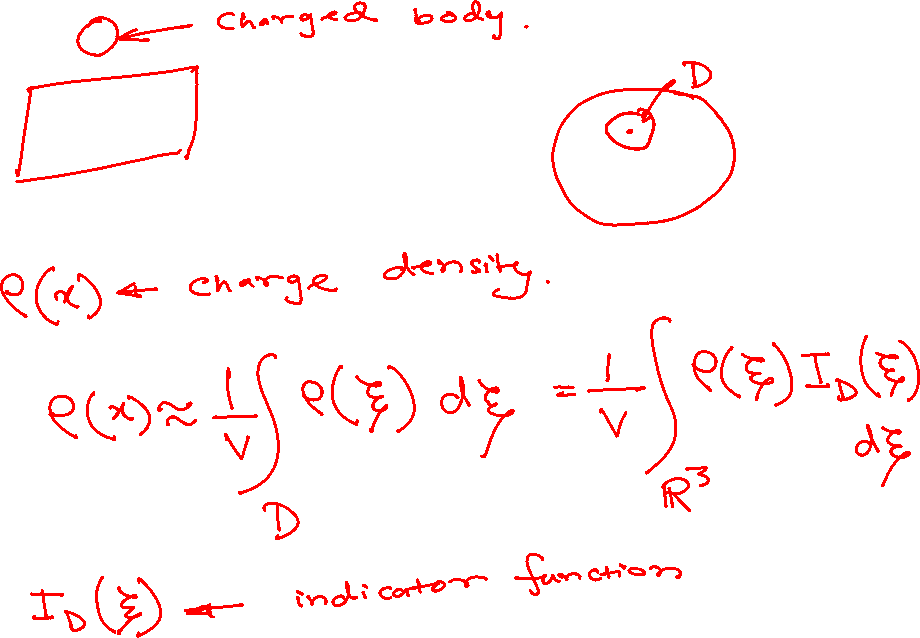 charged body.
D
ρ(x) ← charge density.
ρ(x) ≈ 1/V ∫_D ρ(ξ) dξ = 1/V ∫_ℝ³ ρ(ξ) I_D(ξ) dξ
I_D(ξ) ← indicator function